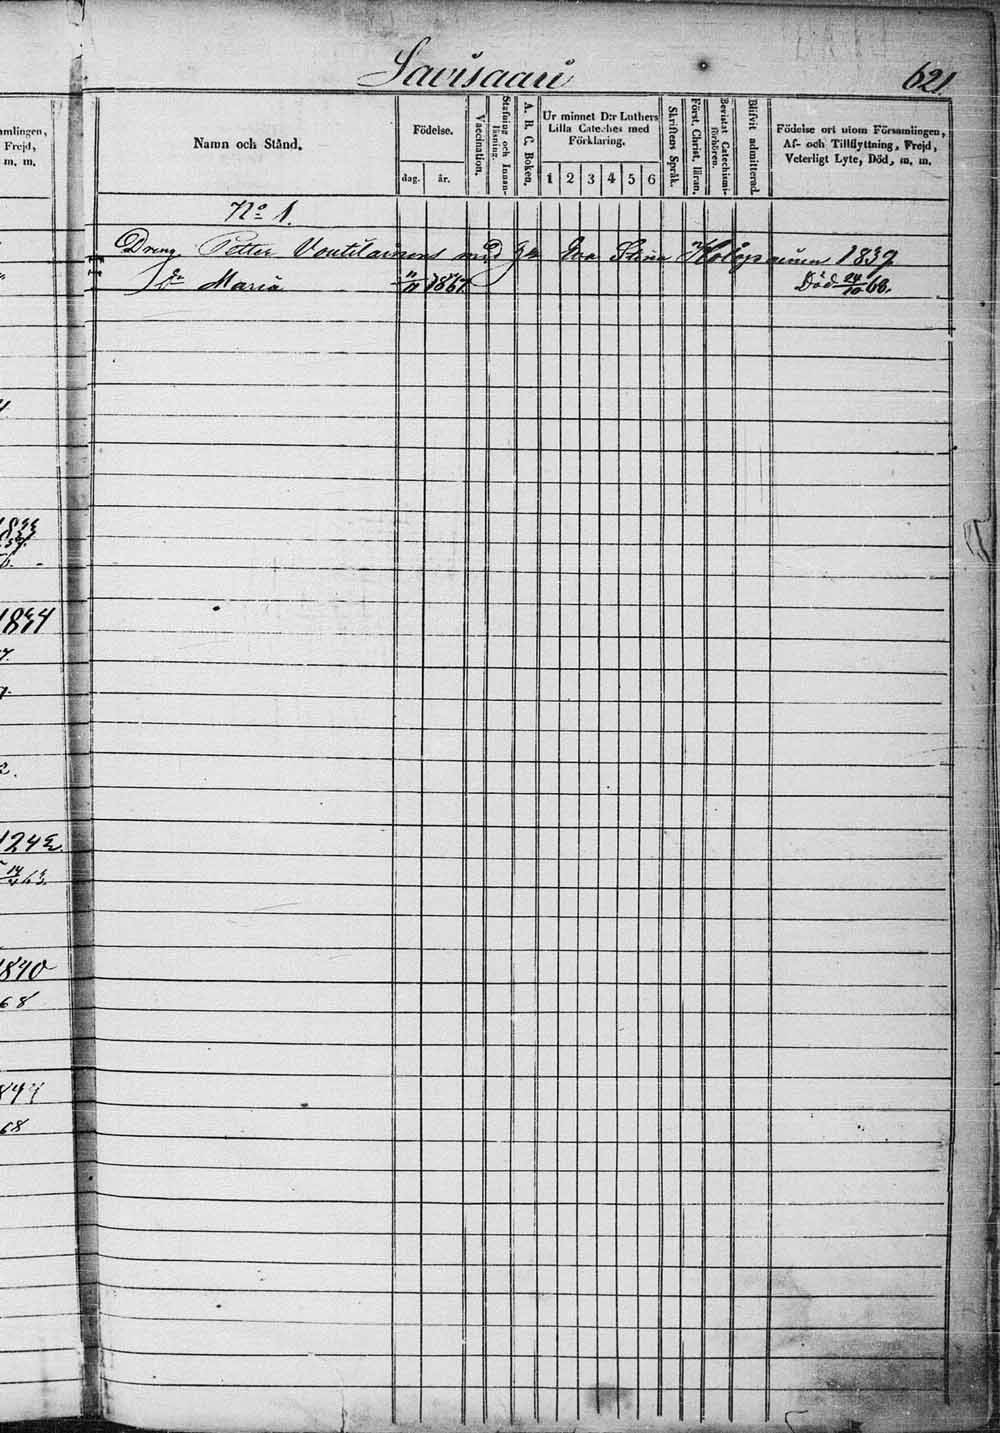 Savisaari
621
amlingen,
Frejd,
m. m.
Namn och Stånd.
Födelse.
dag.
år.
Vaccination.
Stafning och Innan-
läsning.
A. B. C. Boken.
Ur minnet D:r Luthers
Lilla Cateches med
Förklaring.
1 2 3 4 5 6
Skriftens Språk.
Först. Christ. läran.
Bevistat Catechismi-
förhören.
Blifvit admitterad.
Födelse ort utom Församlingen,
Af- och Tillflyttning, Frejd,
Veterligt Lyte, Död, m. m.
No 1.
Dreng Petter Voutilainens med Eva Stina 1839
Maria 11/11 1867. Död 24/10 68.
1834
7.
2.
124
14
63.
1840
68
844
68